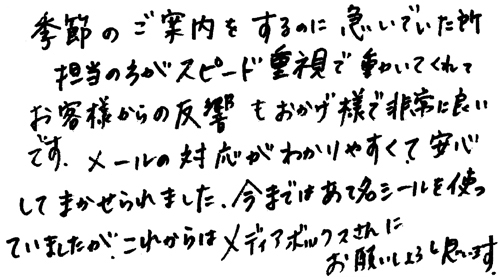 季節のご案内をするのに急いでいた所
担当の方がスピード重視で動いてくれて
お客様からの反響もおかげ様で非常に良い
です。メールの対応がわかりやすくて安心
してまかせられました。今まではあて名シールを使っ
ていましたが、これからはメディアボックスさんに
お願いしようと思います。